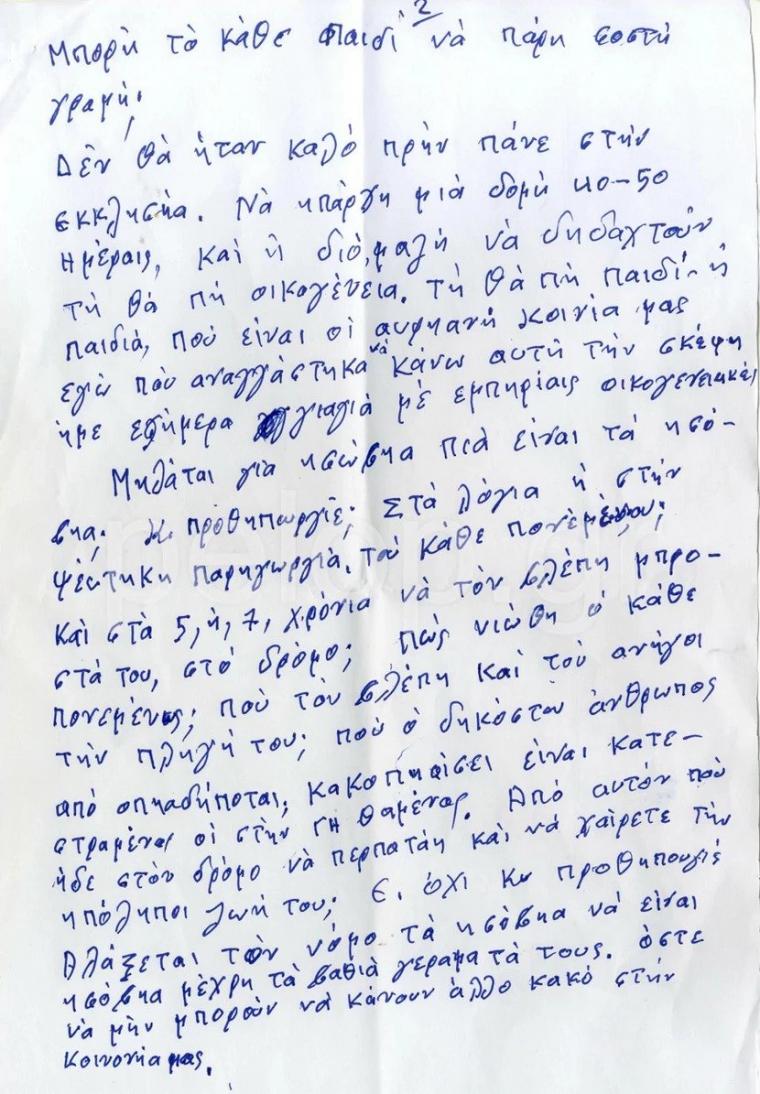 2
Μπορὴ τὸ κάθε παιδί νὰ πάρη σοστὴ
γραμή;
Δὲν θὰ ἤταν καλό πρὴν πάνε στὴν
εκκλησηα. Νὰ ηπάρχη μιὰ δομὴ 40-50
ημέραις, καὶ ἡ διό, μαζὴ νὰ δηδαχτοῦν
τὴ θὰ πὴ οικογένεια. τὴ θὰ πὴ παιδί-ἡ
παιδιά, ποὺ είναι οἱ αυρηανὴ κοινία μας
εγὼ ποὺ αναγγάστηκα νὰ κάνω αυτὴ τὴν σκέψη
ἠμε εφήμερα γιαγιά μὲ εμπηρίαις οικογενειακές
Μηλάται για ησώβηα πιὰ είναι τὰ ησό-
βηα; Κ. προθηπωργέ; Στὰ λόγια ἡ στὴν
ψέυτηκη παρηγωργιά. τοὺ κάθε πονεμένου;
Και στα 5, ἡ, 7, χρόνια νὰ τὸν βλέπη μπρο-
στά του, στὸ δρόμο; πὼς νιώθη ὁ κάθε
πονεμένος; ποὺ τὸν βλέπη και τοὺ ανήγοι
τὴν πληγή του; ποὺ ὁ δηκόστου ἄνθρωπος
από οπηαδήποται, κακοπηαίσει είναι κατε-
στραμένος οἱ στὴν γῆ θαμένος. Από αυτόν ποὺ
ἠδε στὸν δρόμο νὰ περπατάη και νὰ χαίρετε τὴν
ηπόληποι ζωή του; Ε. όχι Κε προθηπουργέ
Αλάξεται τὸν νόμο τὰ ησόβηα νὰ είναι
ησόβηα μέχρη τὰ βαθιά γεραματά τους. ὁστε
νὰ μὴν μποροῦν νὰ κάνουν άλλο κακό στὴν
κοινονηα μας.
pelop.gr